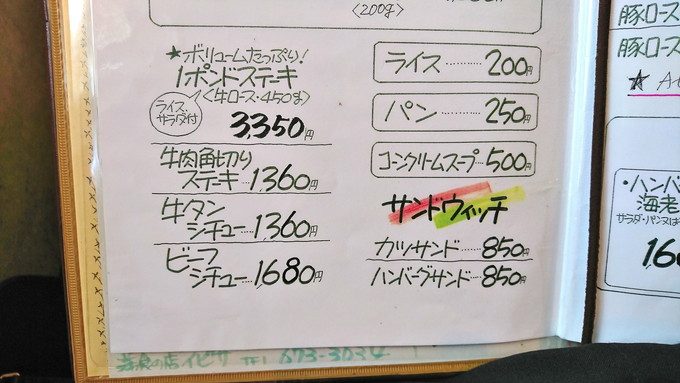 〈200g〉
★ボリュームたっぷり!
1ポンドステーキ
〈牛ロース・450g〉
ライス、
サラダ付
3,350円
牛肉角切り
ステーキ…1,360円
牛タン
シチュー…1,360円
ビーフ
シチュー…1,680円
ライス………200円
パン………250円
コーンクリームスープ…500円
サンドウィッチ
カツサンド……850円
ハンバーグサンド…850円
豚ロース
豚ロース
・ハンバ
海老
サラダ・パン又は
の店イビサ TEL 673-3034